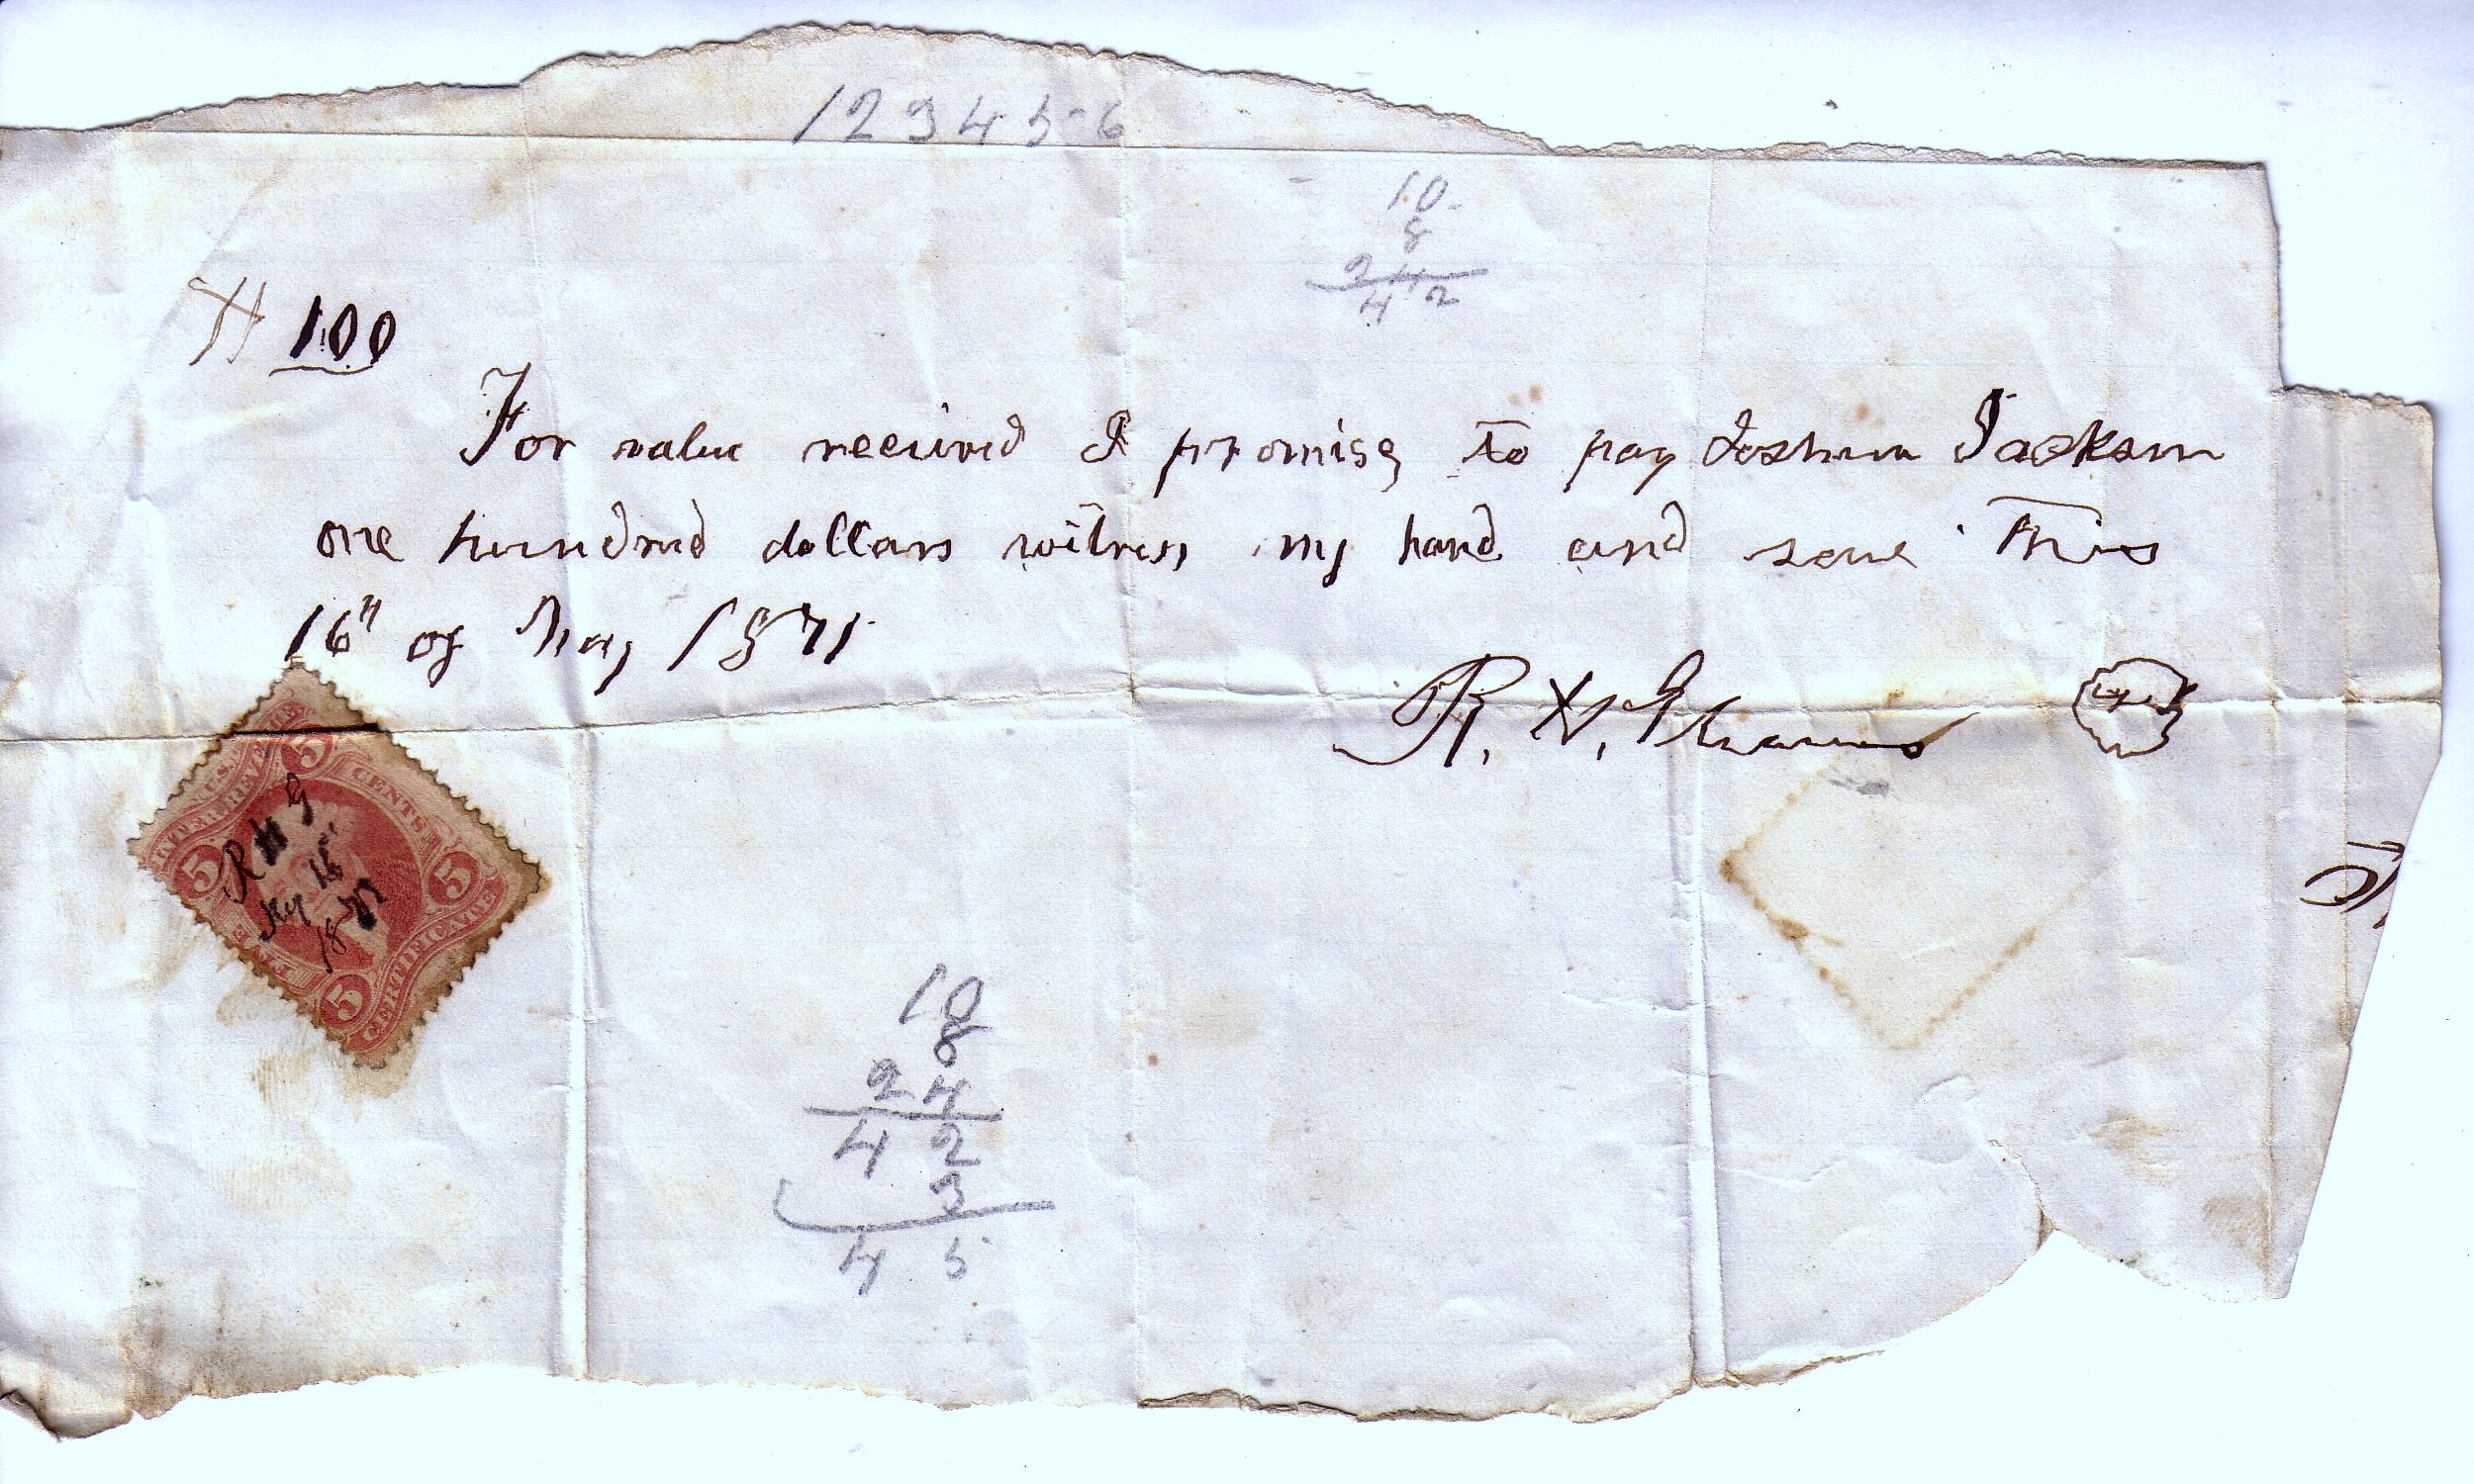 1 2 3 4 5 6
10
8
24
42
100
For value recieved I promise to pay Joshua Jackson
one hundred dollars witness my hand and seal this
16th of May 1871
R. H.
seal
U.S. INTER. REVENUE
FIVE CENTS
CERTIFICATE
5
5
5
5
R H G
My 16
18
10
8
24
42
3
45